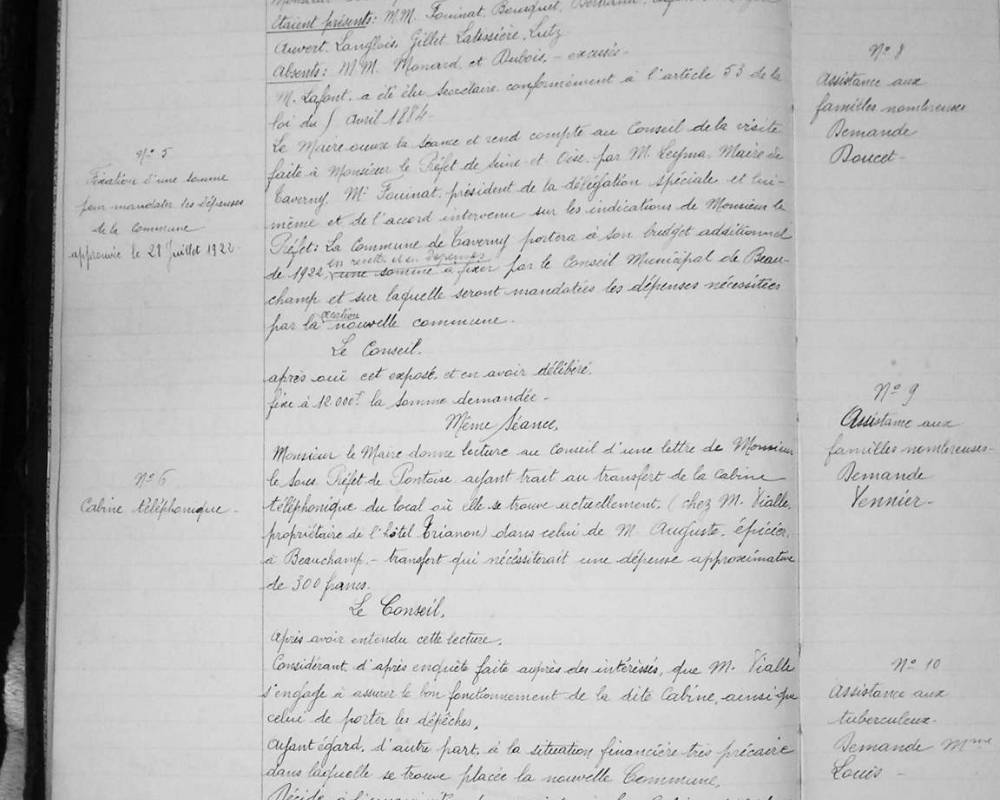 Etaient présents: M.M. Fouinat, Bourguet,
Auvert, Langlois, Gillet, Latissière, Lutz
Absents: M.M. Monard et Dubois, - excusés -
M. Lafont, a été élu secrétaire conformément à l'article 53 de la
loi du 5 Avril 1884.
N° 5
Fixation d'une somme
pour mandater les dépenses
de la commune
approuvée le 28 Juillet 1922
Le Maire ouvre la séance et rend compte au Conseil de la visite
faite à Monsieur le Préfet de Seine-et-Oise, par M. Leyma, Maire de
Taverny, Mr Fouinat, président de la délégation spéciale et lui-
même et de l'accord intervenu sur les indications de Monsieur le
Préfet: La Commune de Taverny portera à son budget additionnel
en recette et en dépenses
de 1922, une somme à fixer par le Conseil Municipal de Beau-
champ et sur laquelle seront mandatées les dépenses nécessitées
gestion
par la nouvelle commune.
Le Conseil.
après ouï cet exposé, et en avoir délibéré,
fixe à 12.000f la somme demandée -
Même Séance,
N° 6
Cabine téléphonique -
Monsieur le Maire donne lecture au Conseil d'une lettre de Monsieur
le Sous Préfet de Pontoise ayant trait au transfert de la cabine
téléphonique du local où elle se trouve actuellement, (chez M. Vialle,
propriétaire de l'hôtel Trianon) dans celui de M. Auguste, épicier,
à Beauchamp, - transfert qui nécessiterait une dépense approximative
de 300 francs.
Le Conseil,
Après avoir entendu cette lecture,
Considérant, d'après enquête faite auprès des intéressés, que M. Vialle
s'engage à assurer le bon fonctionnement de la dite Cabine, ainsi que
celui de porter les dépêches,
Ayant égard, d'autre part, à la situation financière très précaire
dans laquelle se trouve placée la nouvelle Commune,
Décide à l'unanimité
N° 8
Assistance aux
familles nombreuses
Demande
Doucet -
N° 9
Assistance aux
familles nombreuses -
Demande
Vennier -
N° 10
Assistance aux
tuberculeux -
Demande Mme
Louis -